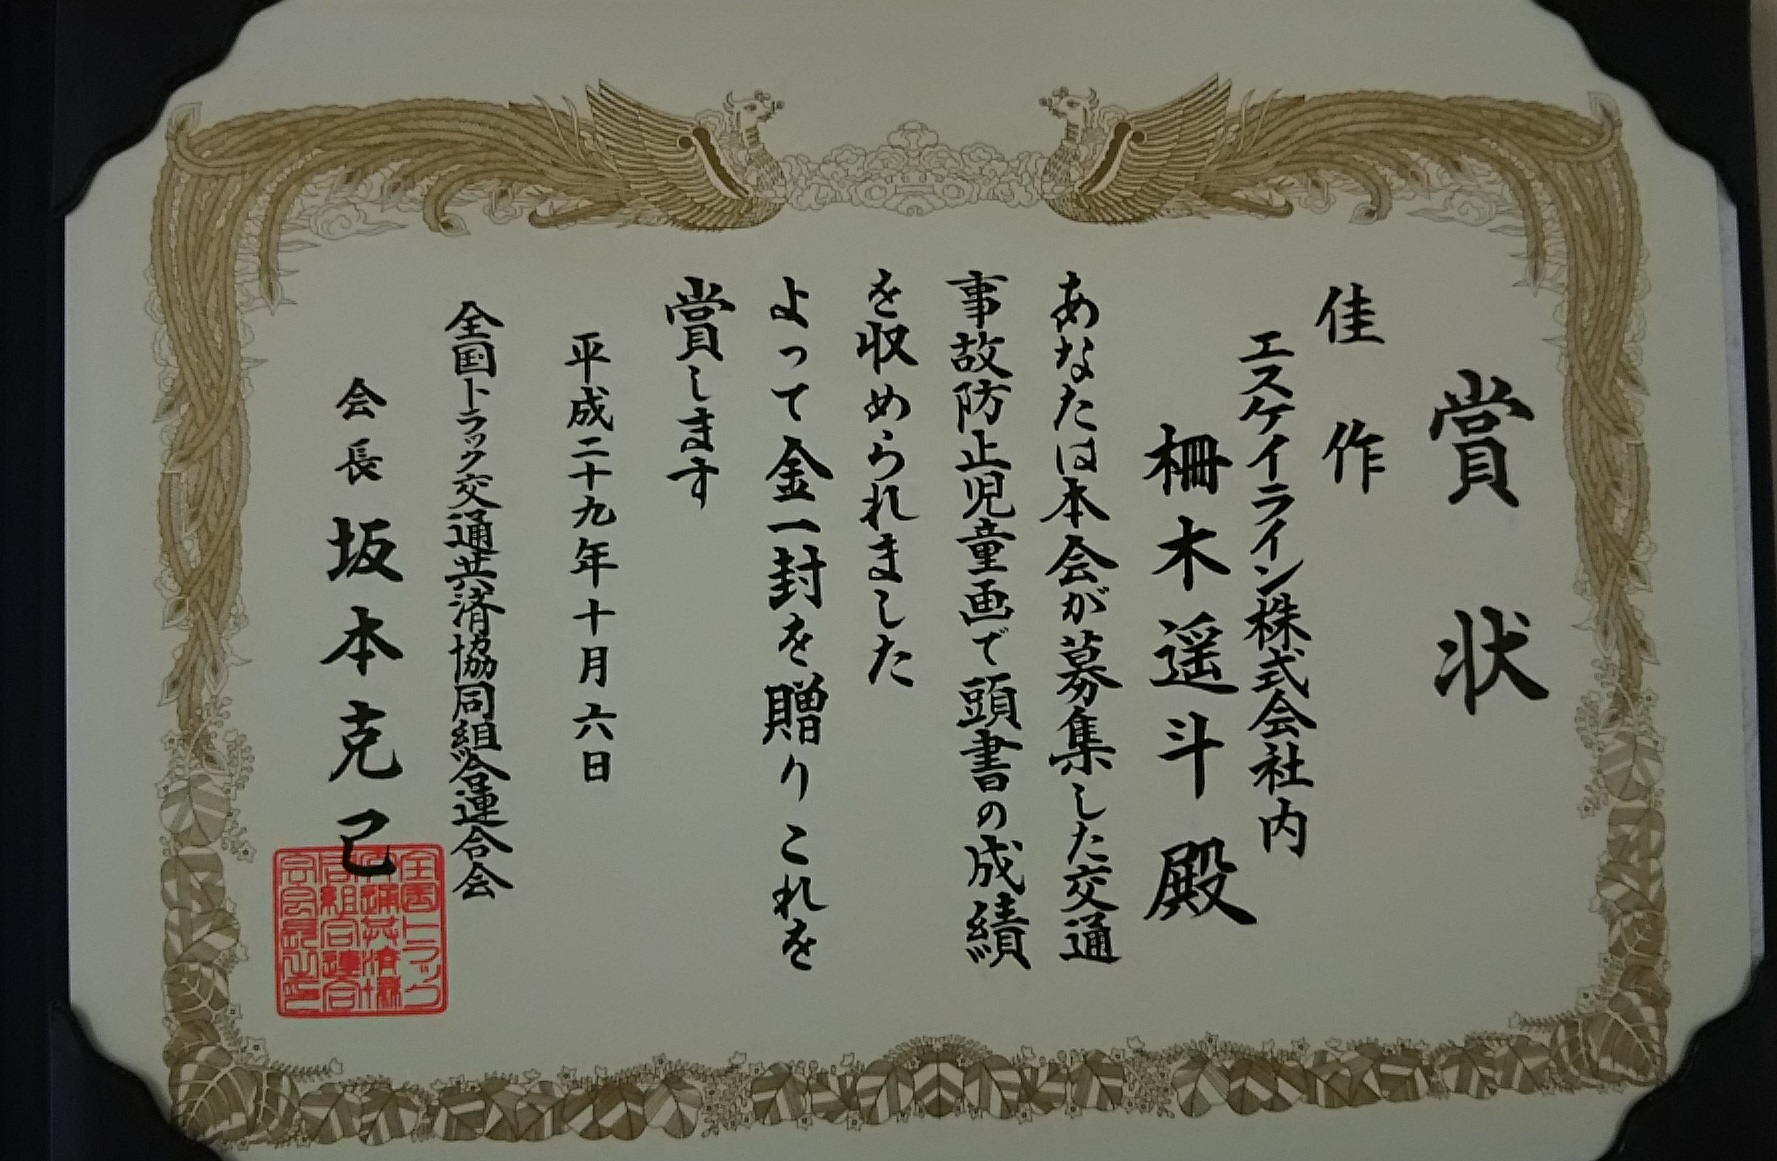 賞状
佳作
エスケイライン株式会社内
柵木遥斗殿
あなたは本会が募集した交通
事故防止児童画で頭書の成績
を収められました
よって金一封を贈りこれを
賞します
平成二十九年十月六日
全国トラック交通共済協同組合連合会
会長坂本克己
全国トラック
交通共済協
同組合連合
会会長之印